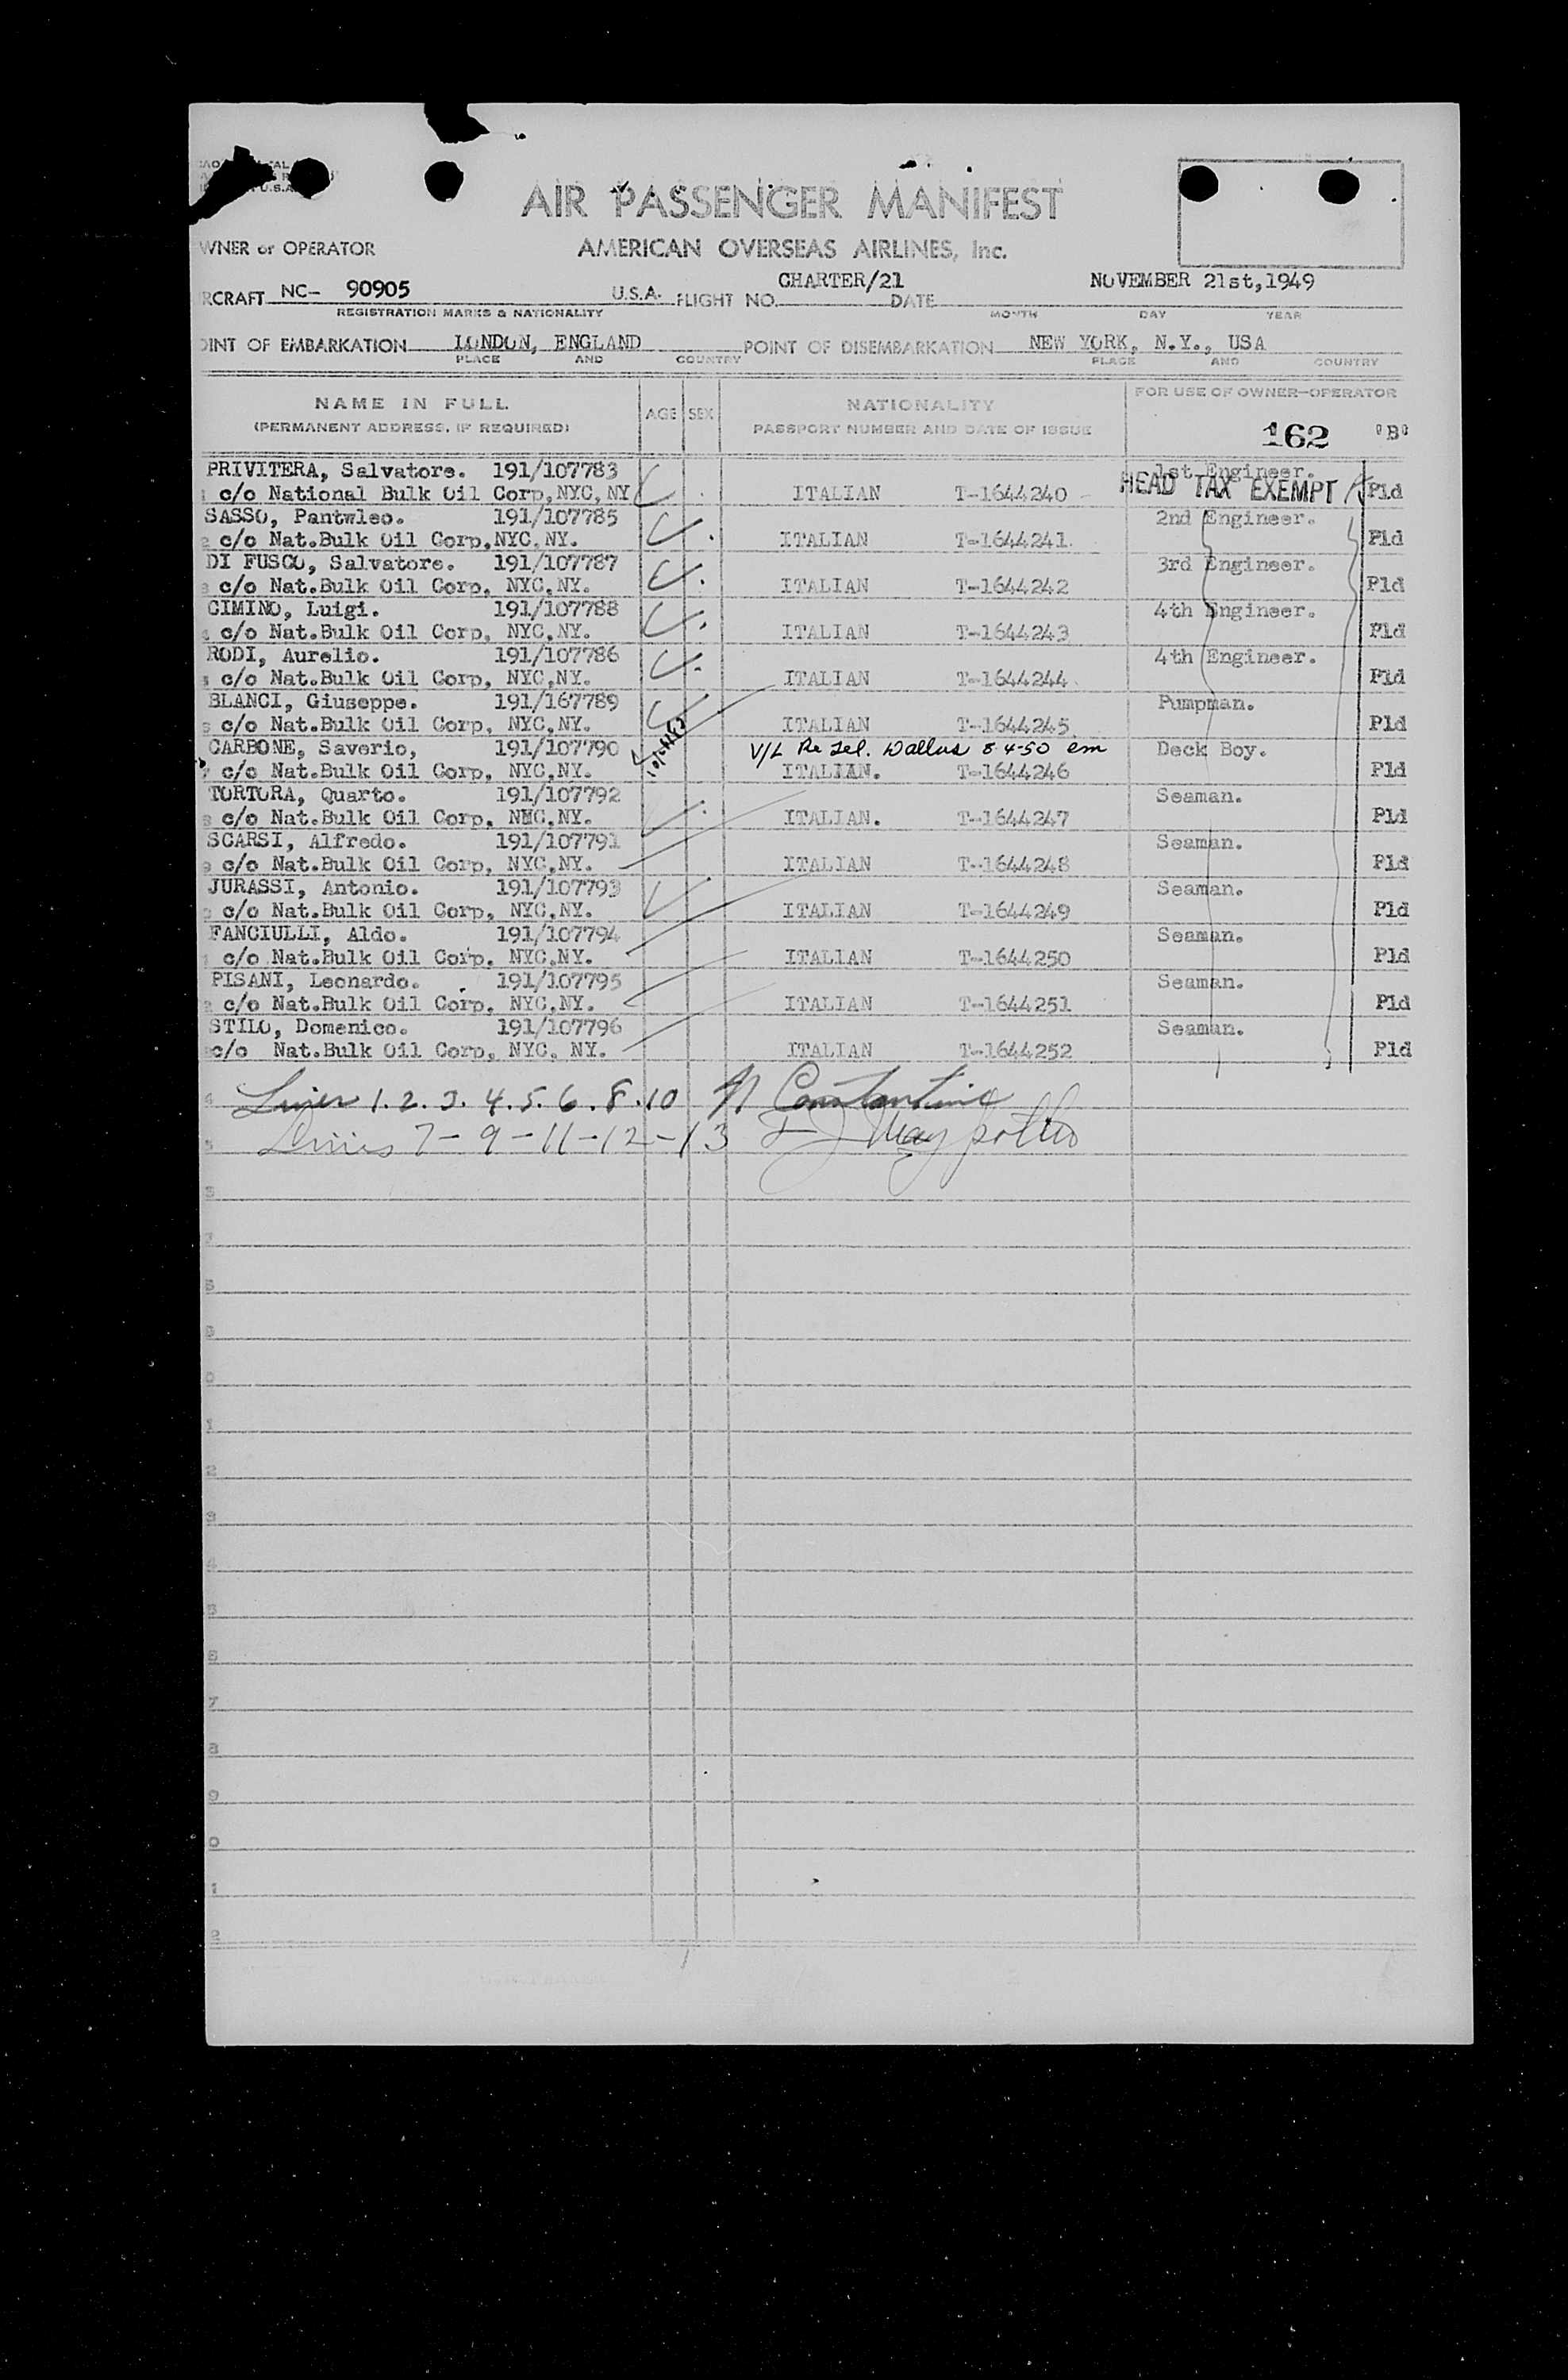 AIR PASSENGER MANIFEST
WNER or OPERATOR AMERICAN OVERSEAS AIRLINES, Inc.
RCRAFT NC- 90905 U.S.A. FLIGHT NO. CHARTER/21 DATE NOVEMBER 21st,1949
REGISTRATION MARKS & NATIONALITY MONTH DAY YEAR
OINT OF EMBARKATION LONDON, ENGLAND POINT OF DISEMBARKATION NEW YORK, N.Y., USA
PLACE AND COUNTRY PLACE AND COUNTRY
NAME IN FULL AGE SEX NATIONALITY FOR USE OF OWNER-OPERATOR
(PERMANENT ADDRESS, IF REQUIRED) PASSPORT NUMBER AND DATE OF ISSUE 162 "B"
PRIVITERA, Salvatore. 191/107783 1st Engineer.
1 c/o National Bulk Oil Corp,NYC,NY ITALIAN T-1644240 HEAD TAX EXEMPT Pld
SASSO, Pantwleo. 191/107785 2nd Engineer.
2 c/o Nat.Bulk Oil Corp.NYC.NY. ITALIAN T-1644241. Pld
DI FUSCO, Salvatore. 191/107787 3rd Engineer.
3 c/o Nat.Bulk Oil Corp, NYC,NY. ITALIAN T-1644242 Pld
CIMINO, Luigi. 191/107788 4th Engineer.
4 c/o Nat.Bulk Oil Corp, NYC,NY. ITALIAN T-1644243 Pld
RODI, Aurelio. 191/107786 4th Engineer.
5 c/o Nat.Bulk Oil Corp, NYC,NY. ITALIAN T-1644244 Pld
BLANCI, Giuseppe. 191/167789 Pumpman.
6 c/o Nat.Bulk Oil Corp, NYC,NY. ITALIAN T-1644245 Pld
CARBONE, Saverio, 191/107790 V/L Re Tel. Dallas 8-4-50 em Deck Boy.
7 c/o Nat.Bulk Oil Corp, NYC,NY. ITALIAN. T-1644246 Pld
TORTORA, Quarto. 191/107792 Seaman.
8 c/o Nat.Bulk Oil Corp. NYC.NY. ITALIAN. T-1644247 Pld
SCARSI, Alfredo. 191/107791 Seaman.
9 c/o Nat.Bulk Oil Corp, NYC,NY. ITALIAN T-1644248 Pld
JURASSI, Antonio. 191/107793 Seaman.
0 c/o Nat.Bulk Oil Corp, NYC,NY. ITALIAN T-1644249 Pld
FANCIULLI, Aldo. 191/107794 Seaman.
1 c/o Nat.Bulk Oil Corp. NYC.NY. ITALIAN T-1644250 Pld
PISANI, Leonardo. 191/107795 Seaman.
2 c/o Nat.Bulk Oil Corp. NYC.NY. ITALIAN T-1644251 Pld
STILO, Domenico. 191/107796 Seaman.
c/o Nat.Bulk Oil Corp, NYC, NY. ITALIAN T-1644252 Pld
4 Lines 1.2.3.4.5.6.8.10 Constantine
5 Lines 7-9-11-12-13
6
7
8
9
0
1
2
3
4
5
6
7
8
9
0
1
2